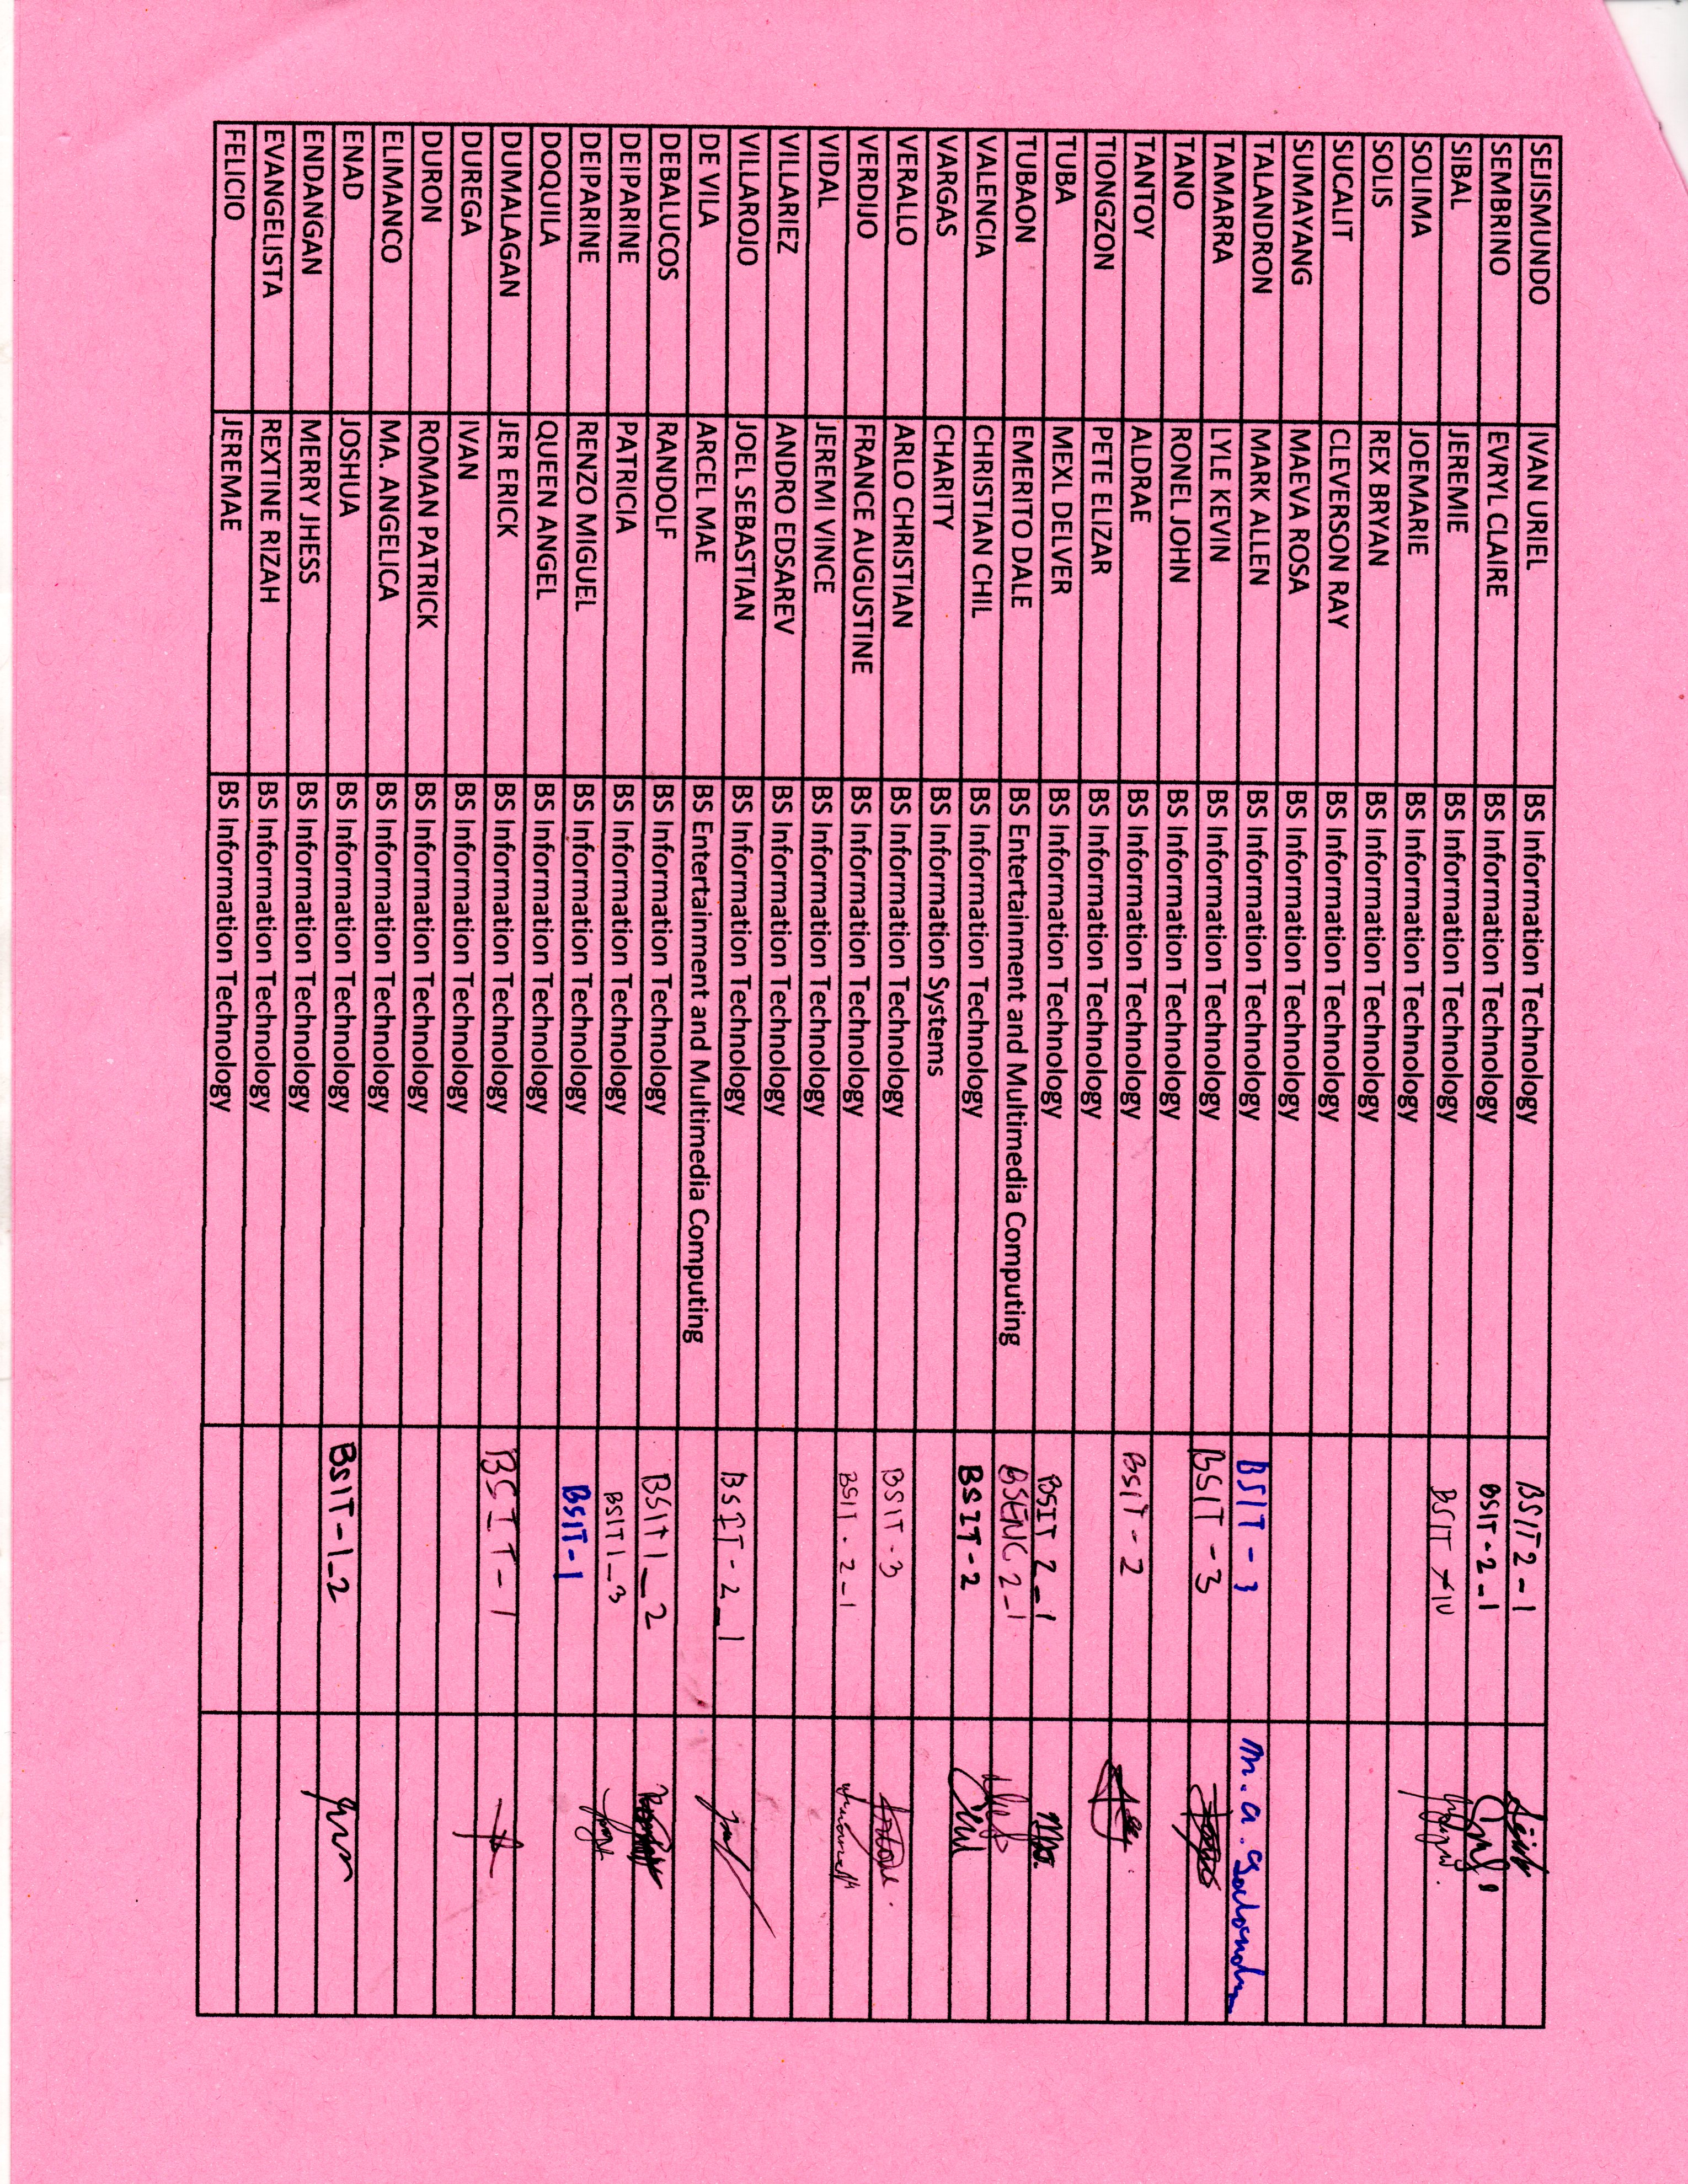 SEJISMUNDO IVAN URIEL BS Information Technology BSIT 2-1
SEMBRINO EVRYL CLAIRE BS Information Technology BSIT-2_1
SIBAL JEREMIE BS Information Technology BSIT
SOLIMA JOEMARIE BS Information Technology
SOLIS REX BRYAN BS Information Technology
SUCALIT CLEVERSON RAY BS Information Technology
SUMAYANG MAEVA ROSA BS Information Technology
TALANDRON MARK ALLEN BS Information Technology BSIT-3 M. A.
TAMARRA LYLE KEVIN BS Information Technology BSIT-3
TANO RONEL JOHN BS Information Technology
TANTOY ALDRAE BS Information Technology BSIT-2
TIONGZON PETE ELIZAR BS Information Technology
TUBA MEXL DELVER BS Information Technology BSIT 2_1
TUBAON EMERITO DALE BS Entertainment and Multimedia Computing BSEMC 2_1
VALENCIA CHRISTIAN CHIL BS Information Technology BSIT-2
VARGAS CHARITY BS Information Systems
VERALLO ARLO CHRISTIAN BS Information Technology BSIT-3
VERDIJO FRANCE AUGUSTINE BS Information Technology BSIT-2_1
VIDAL JEREMI VINCE BS Information Technology
VILLARIEZ ANDRO EDSAREV BS Information Technology
VILLAROJO JOEL SEBASTIAN BS Information Technology BSIT-2_1
DE VILA ARCEL MAE BS Entertainment and Multimedia Computing
DEBALUCOS RANDOLF BS Information Technology BSIT 1_2
DEIPARINE PATRICIA BS Information Technology BSIT 1_3
DEIPARINE RENZO MIGUEL BS Information Technology BSIT-1
DOQUILA QUEEN ANGEL BS Information Technology
DUMALAGAN JER ERICK BS Information Technology BSIT-1
DUREGA IVAN BS Information Technology
DURON ROMAN PATRICK BS Information Technology
ELIMANCO MA. ANGELICA BS Information Technology
ENAD JOSHUA BS Information Technology BSIT-1_2
ENDANGAN MERRY JHESS BS Information Technology
EVANGELISTA REXTINE RIZAH BS Information Technology
FELICIO JEREMAE BS Information Technology